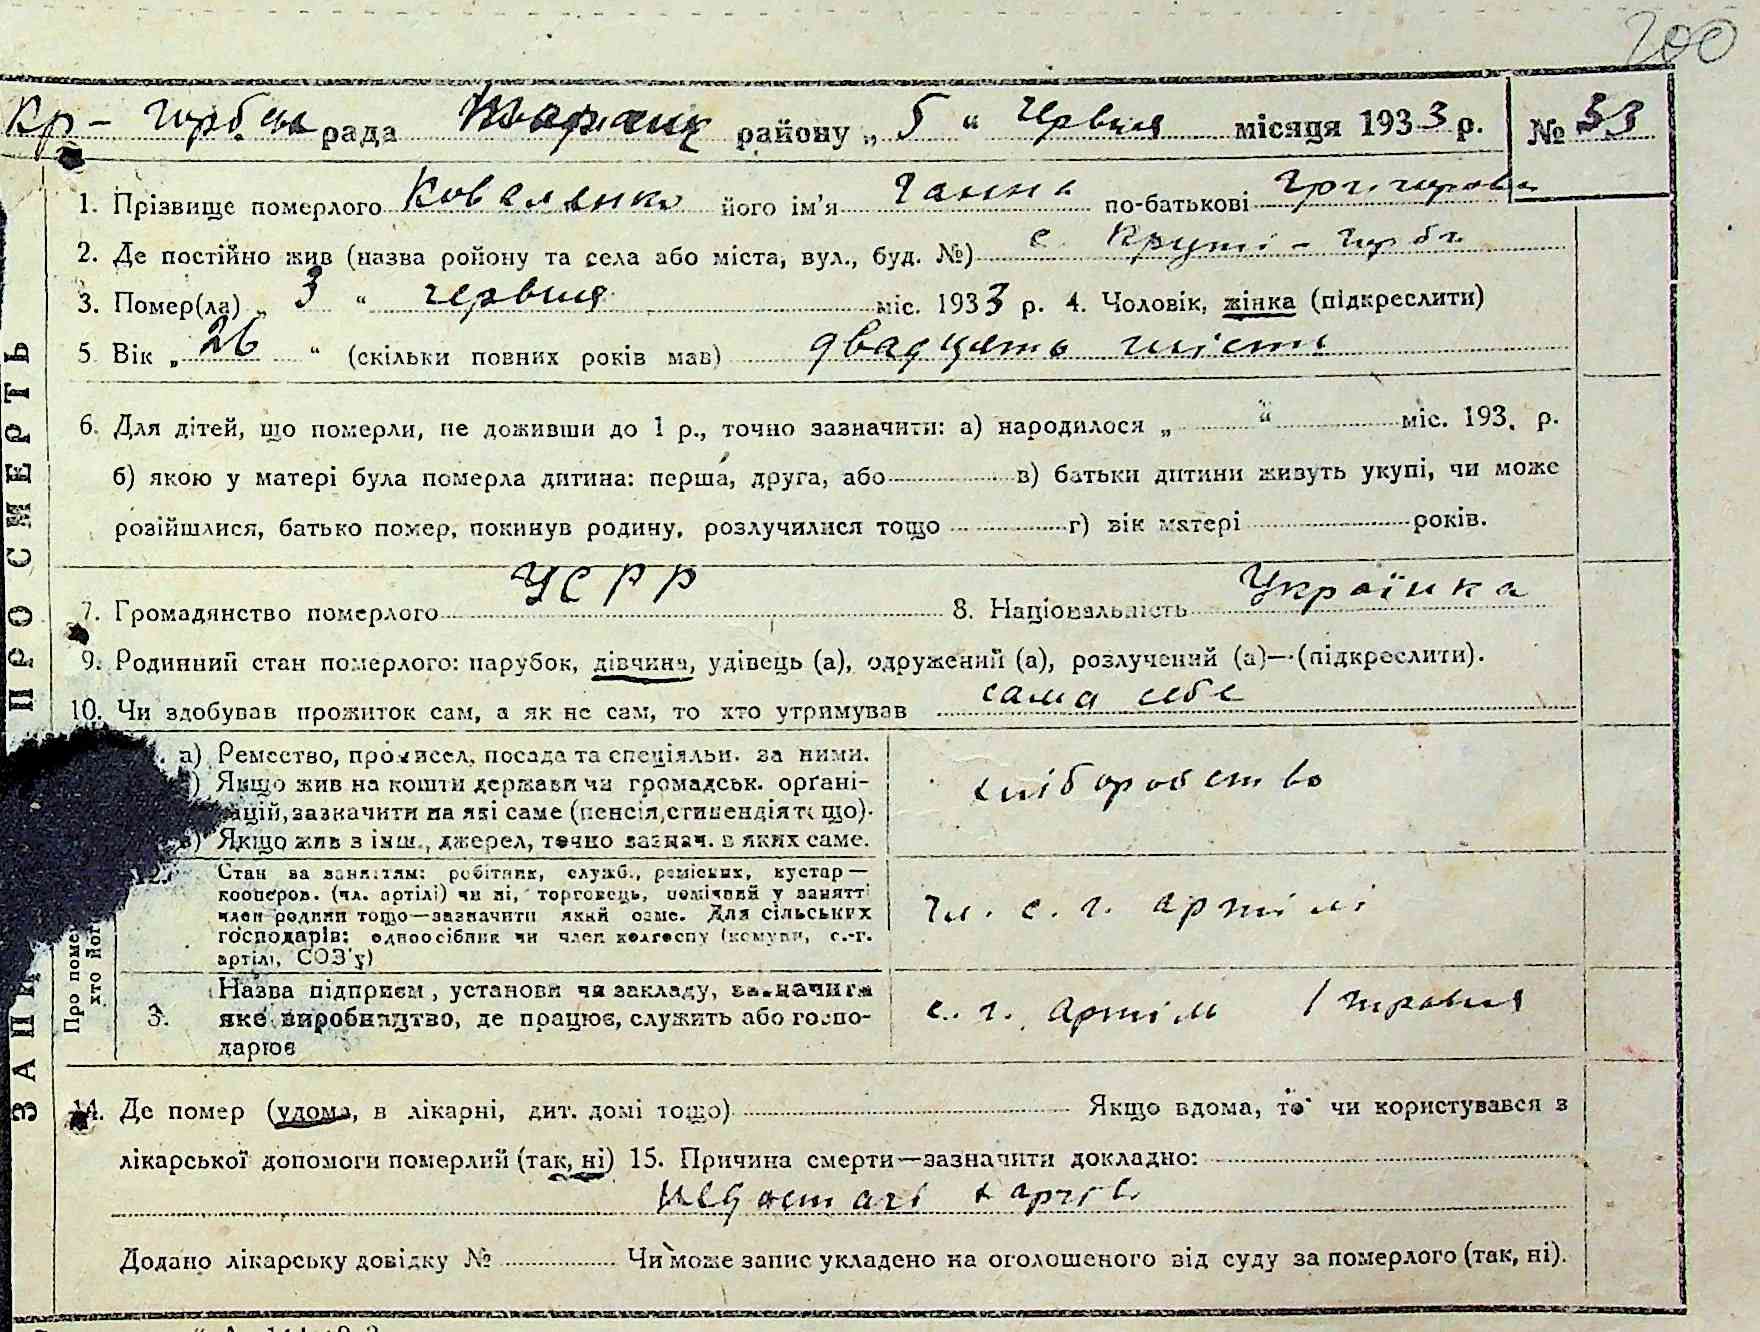 200
Кр - Горбська рада района „ 5 “ Червня місяця 1933 р. № 33
1. Прізвище померлого Коваленко його ім'я Ганна по-батькові Григоровн
2. Де постійно жив (назва ройону та села або міста, вул., буд. №) с. Круті - Горби
3. Помер(ла) „ 3 “ червня міс. 1933 р. 4. Чоловік, жінка (підкреслити)
5 Вік „ 26 “ (скільки повних років мав) двадцять шість
6. Для дітей, що померли, не доживши до 1 р., точно зазначити: а) народилося „ “ міс. 193. р.
б) якою у матері була померла дитина: перша, друга, або в) батьки дитини живуть укупі, чи може
розійшлися, батько помер, покинув родину, розлучилися тощо г) вік матері років.
7. Громадянство померлого УСРР 8. Національність Українка
9. Родинний стан померлого: парубок, дівчина, удівець (а), одружений (а), розлучений (а)—(підкреслити).
10. Чи здобував прожиток сам, а як не сам, то хто утримував сама себе
а) Ремество, промисел, посада та спеціяльн. за ними.
) Якщо жив на кошти держави чи громадськ. орґані-
ацій, зазначити на які саме (пенсія, стипендія тощо).
в) Якщо жив з інш., джерел, точно зазнач. з яких саме.
хліборобство
12. Стан за заняттям: робітник, служб., ремісник, кустар—
кооперов. (чл. артілі) чи ні, торговець, помічний у занятті
член родини тощо—зазначити який саме. Для сільських
господарів: одноосібник чи член колгоспу (комуни, с.-г.
артілі, СОЗ'у)
чл. с. г. артілі
3. Назва підприєм, установи чи закладу, зазначити
яке виробництво, де працює, служить або госпо-
дарює
с. г. артіль 1 травня
Про поме
хто його
14. Де помер (удома, в лікарні, дит. домі тощо) Якщо вдома, то чи користувався з
лікарської допомоги померлий (так, ні) 15. Причина смерти—зазначити докладно:
недостачі харчів
Додано лікарську довідку № Чи може запис укладено на оголошеного від суду за померлого (так, ні).
ПРО СМЕРТЬ